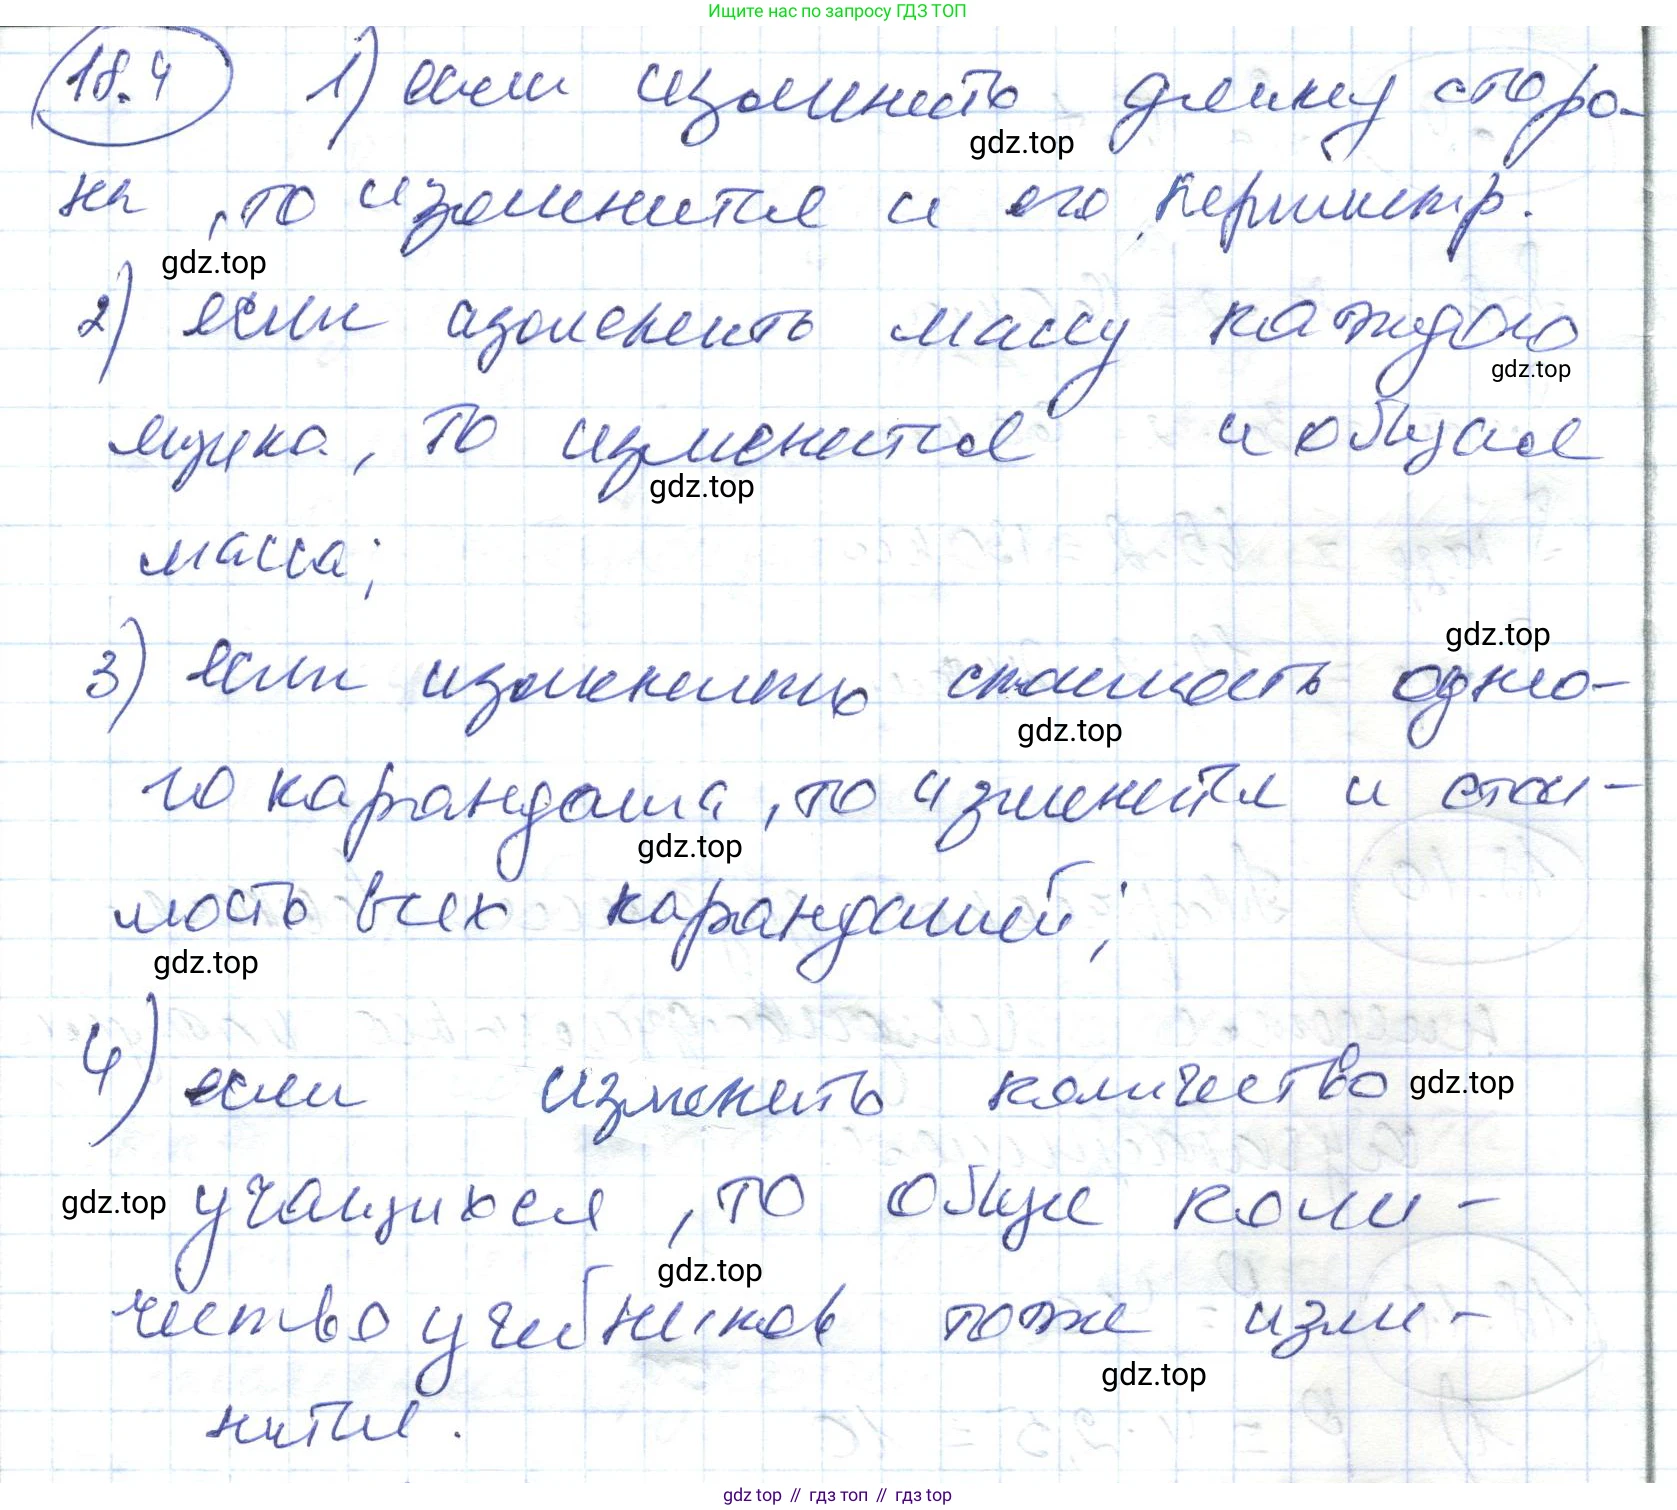 Ищите нас по запросу ГДЗ ТОП
18.4 1) если изменить длину сторо-
gdz.top
ны, то изменится и его периметр.
gdz.top
2) если изменить массу каждого
gdz.top
ящика, то изменится и общая
gdz.top
масса;
gdz.top
3) если изменить стоимость одно-
gdz.top
го карандаша, то изменится и стои-
gdz.top
мость всех карандашей;
gdz.top
4) если изменить количество gdz.top
gdz.top учащихся, то общее коли-
gdz.top
чество учебников тоже изме-
gdz.top
нится.
gdz top // гдз топ // гдз top